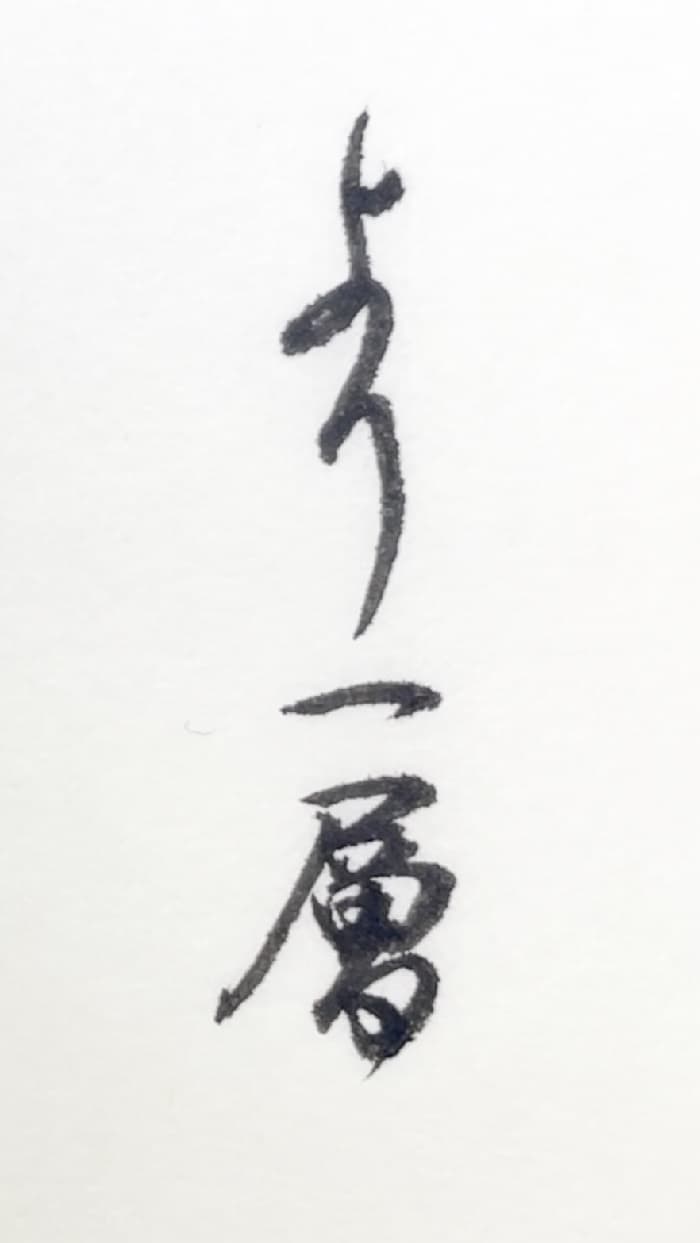 より一層